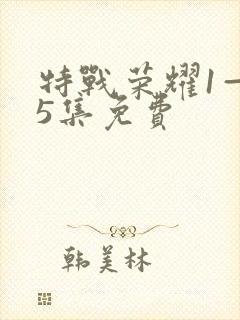 特戰荣耀1一
5集免費
韩美林